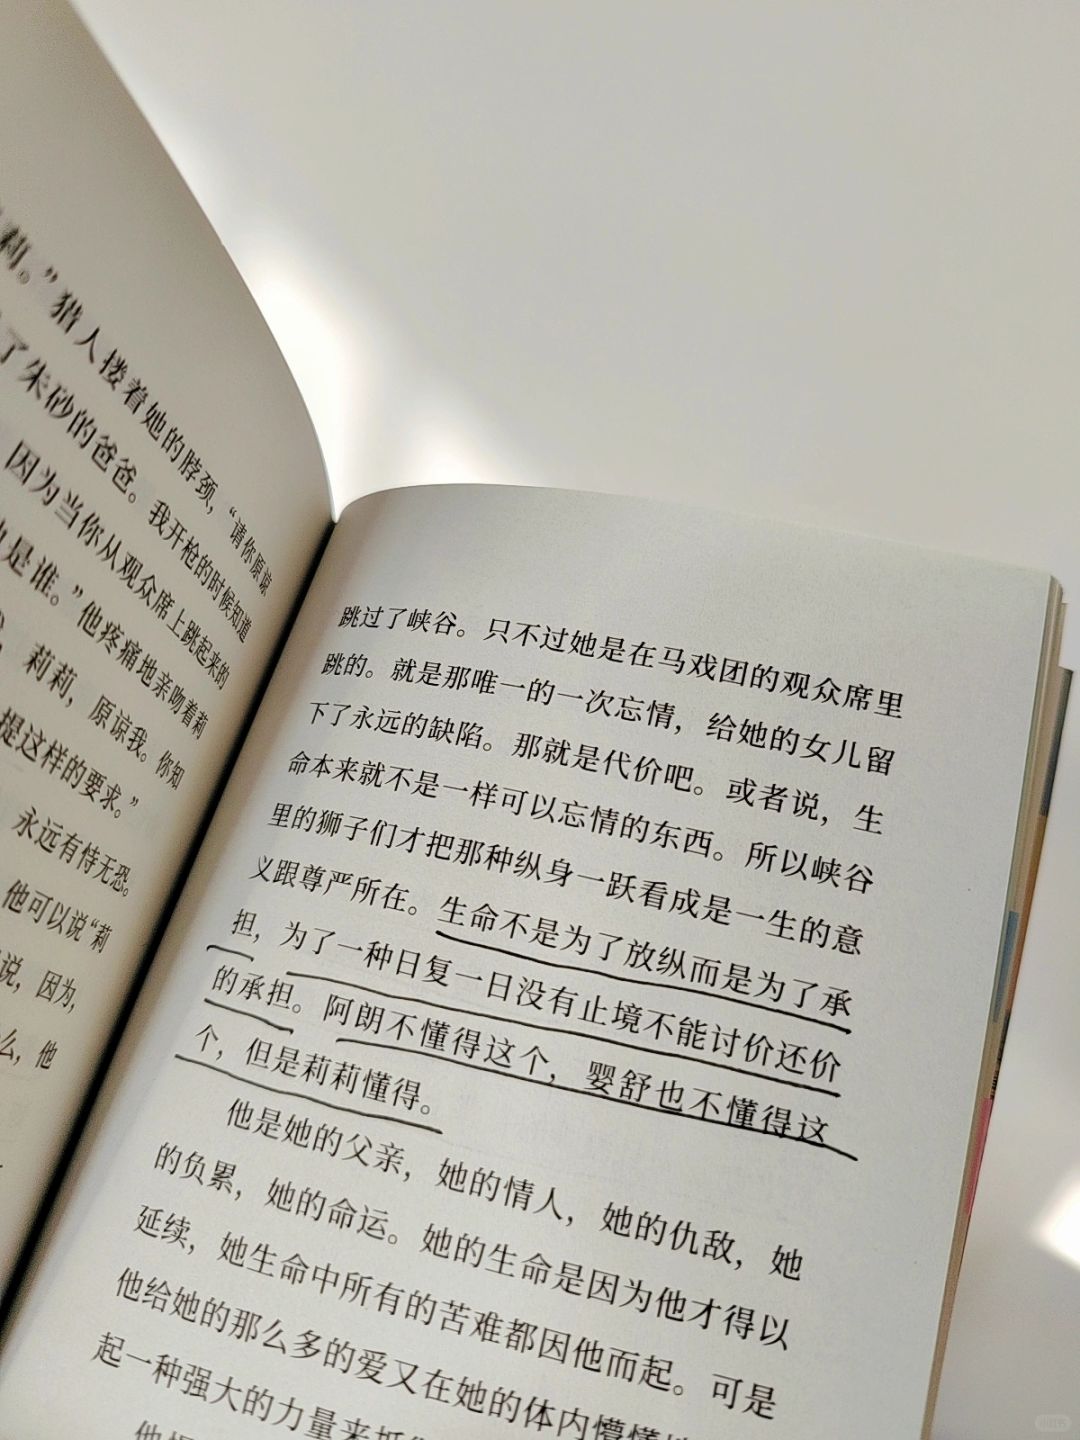 莉。”猎人搂着她的脖颈，“请你原谅
了朱砂的爸爸。我开枪的时候知道
因为当你从观众席上跳起来的
是谁。”他疼痛地亲吻着莉
，莉莉，原谅我。你知
提这样的要求。”
永远有恃无恐。
他可以说“莉
说，因为，
么，他
跳过了峡谷。只不过她是在马戏团的观众席里
跳的。就是那唯一的一次忘情，给她的女儿留
下了永远的缺陷。那就是代价吧。或者说，生
命本来就不是一样可以忘情的东西。所以峡谷
里的狮子们才把那种纵身一跃看成是一生的意
义跟尊严所在。生命不是为了放纵而是为了承
担，为了一种日复一日没有止境不能讨价还价
的承担。阿朗不懂得这个，婴舒也不懂得这
个，但是莉莉懂得。
他是她的父亲，她的情人，她的仇敌，她
的负累，她的命运。她的生命是因为他才得以
延续，她生命中所有的苦难都因他而起。可是
他给她的那么多的爱又在她的体内懵懂地
起一种强大的力量来抵